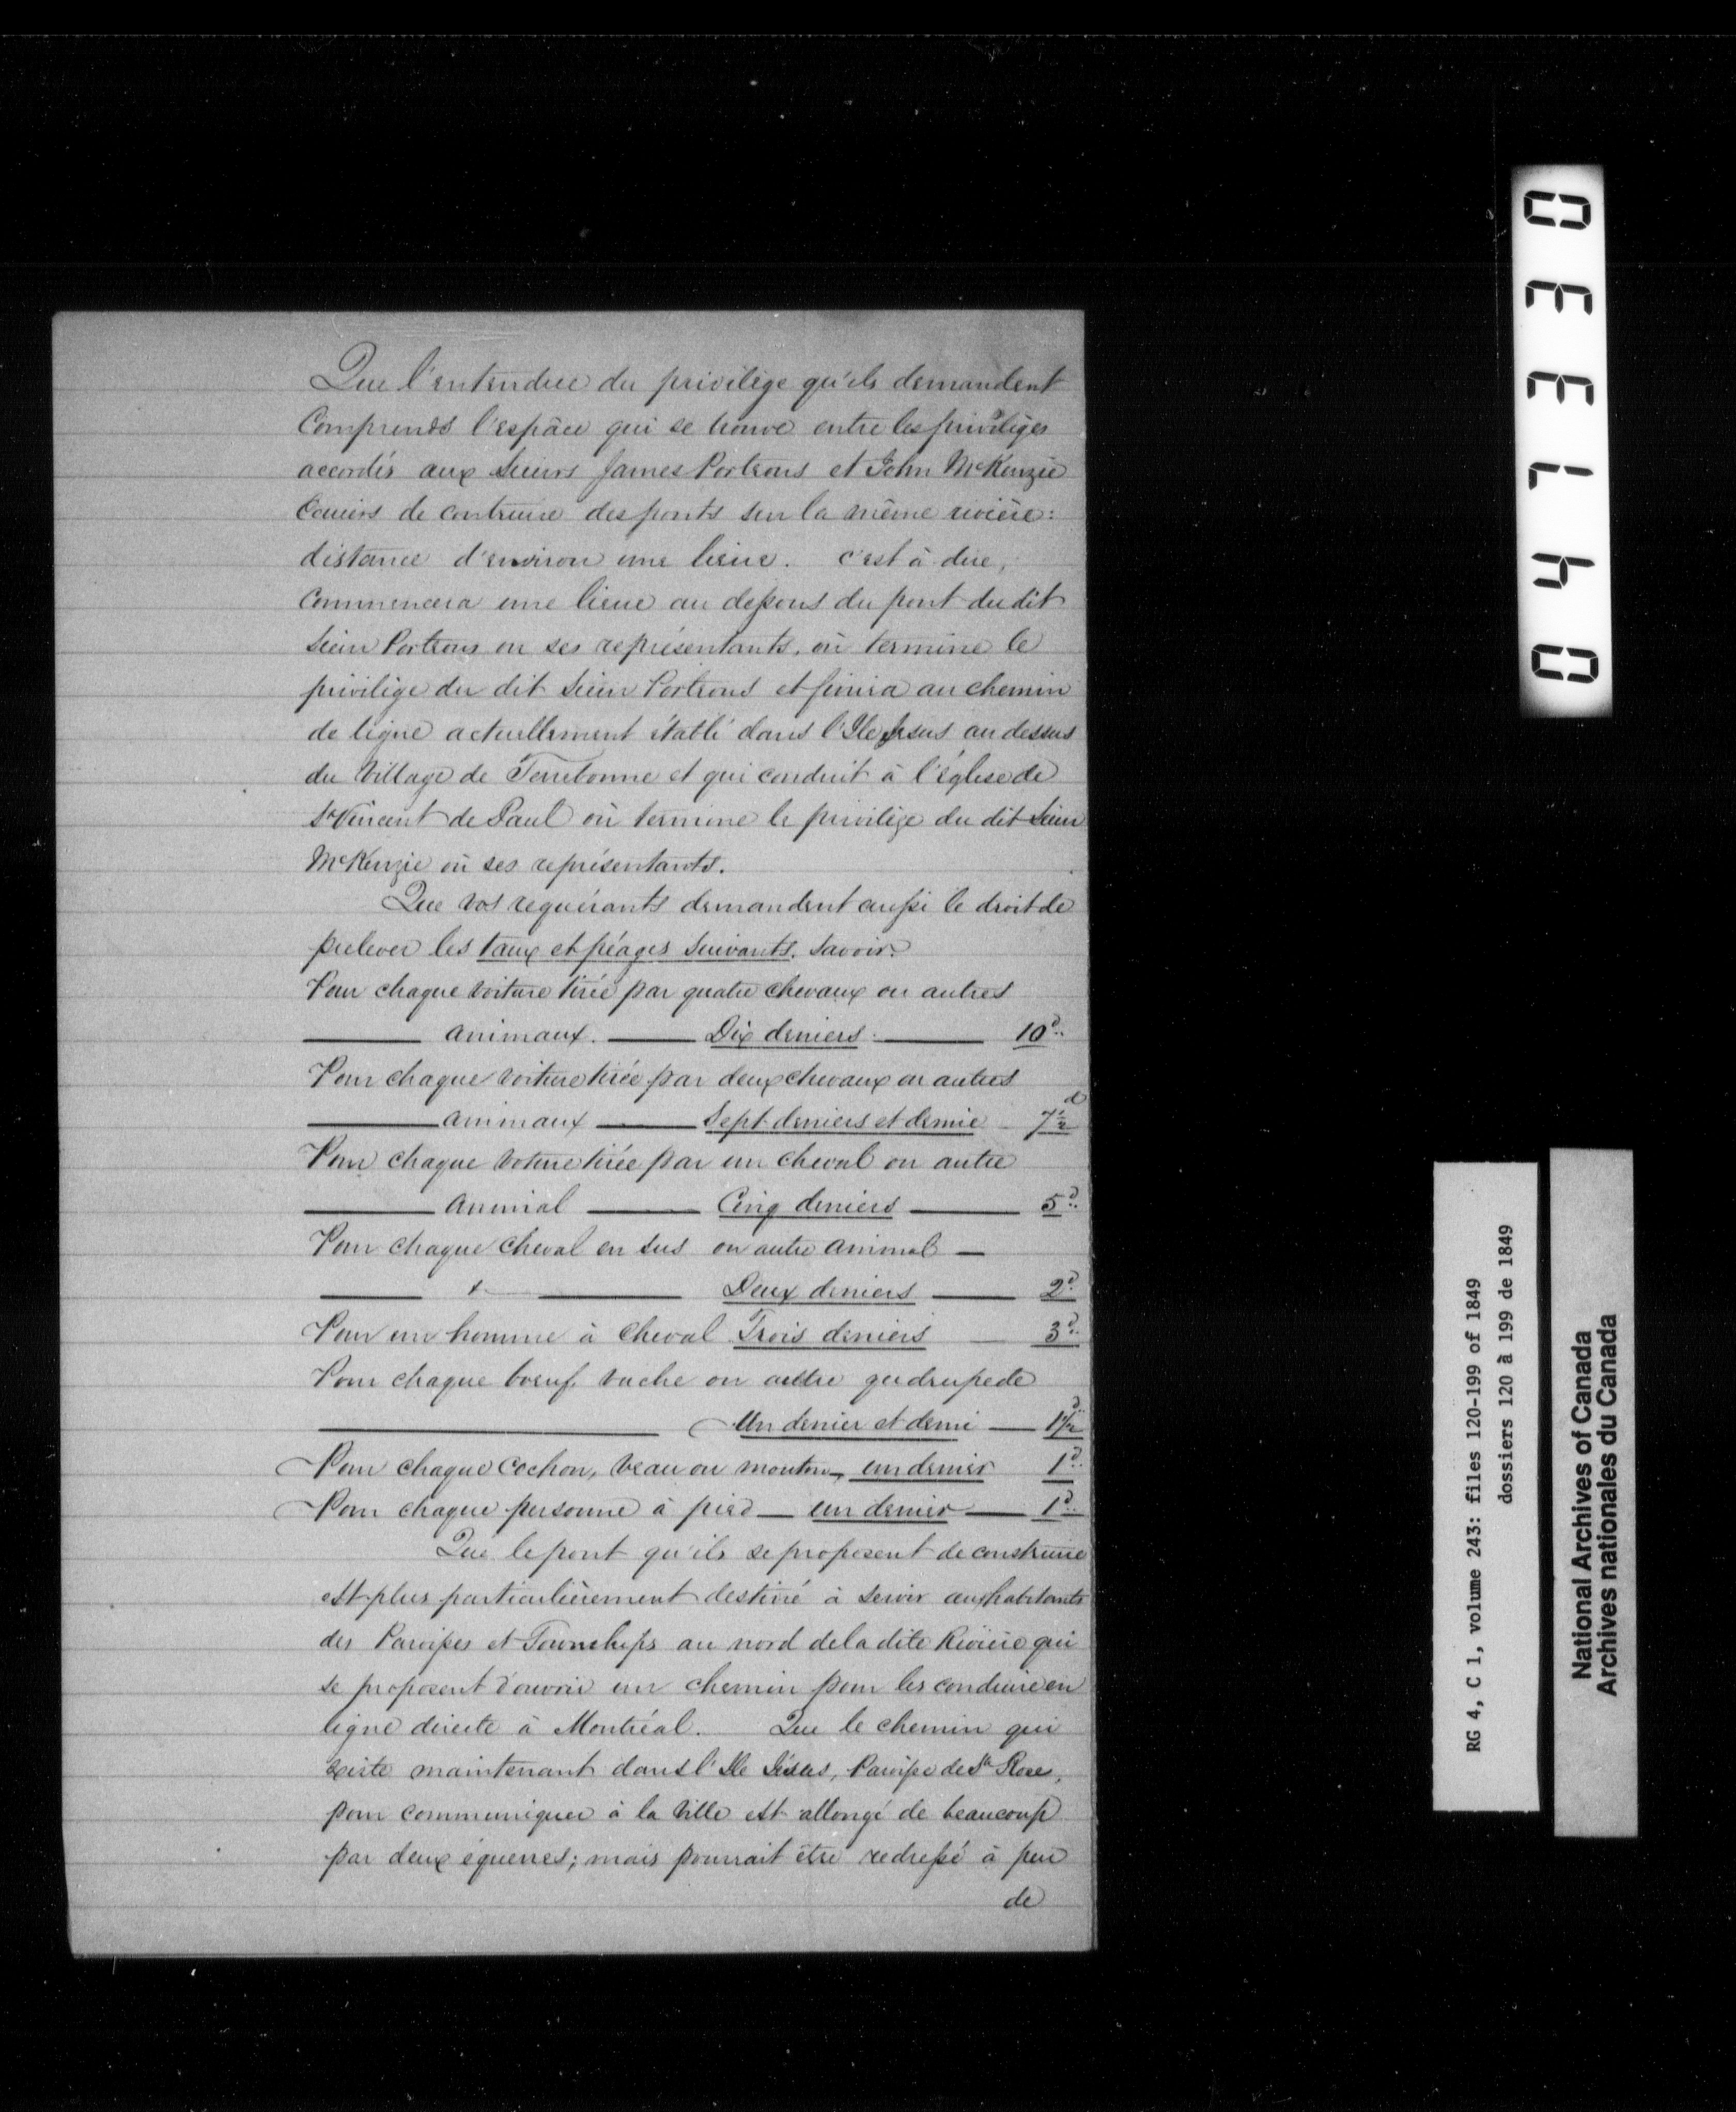 Que l'entendue du privilège qu'ils demandent
Comprends l'espâce qui se trouve entre les privilèges
accordés aux Sieurs James Porteous et John McKenzie
de contruire des ponts sur la même rivière:
distance d'environ une lieue. c'est à dire,
Commencera une lieue au dessous du pont du dit
Sieur Porteous ou ses représentants, où termine le
privilège du dit Sieur Porteous et finira au chemin
de ligne actuellement établi dans l'Ile Jesus au dessus
du Village de Terrebonne et qui conduit à l'église de
St Vincent de Paul où termine le privilège du dit Sieur
McKenzie où ses représentants.
Que vos requérants demandent aussi le droit de
prelever les taux et péages suivants. Savoir:
Pour chaque voiture tirée par quatre chevaux ou autres
——— animaux. ——— Dix deniers ——— 10d
Pour chaque voiture tirée par deux chevaux ou autres
——— animaux ——— Sept deniers et demie 7½d
Pour chaque voiture tirée par un cheval ou autre
——— animal ——— Cinq deniers ——— 5d
Pour chaque cheval en sus ou autre animal —
——— ——— Deux deniers ——— 2d
Pour un homme à cheval Trois deniers — 3d
Pour chaque boeuf, vache ou autre qudrupede
——— Un denier et demi — 1½d
Pour chaque Cochon, veau ou mouton, un denier 1d
Pour chaque personne à pied — un denier — 1d
Que le pont qu'ils se proposent de construire
est plus particulièrement destiné à servir aux habitants
des Paroisses et Townships au nord de la dite Rivière qui
se proposent d'ouvrir un chemin pour les conduire en
ligne directe à Montréal. Que le chemin qui
existe maintenant dans l'Ile Jésus, Paroisse de Ste Rose,
pour communiquer à la Ville est allongé de beaucoup
par deux équerres; mais pourrait être redressé à peu
de
0 4 7 3 3 0
RG 4, C 1, volume 243: files 120-199 of 1849
dossiers 120 à 199 de 1849
National Archives of Canada
Archives nationales du Canada